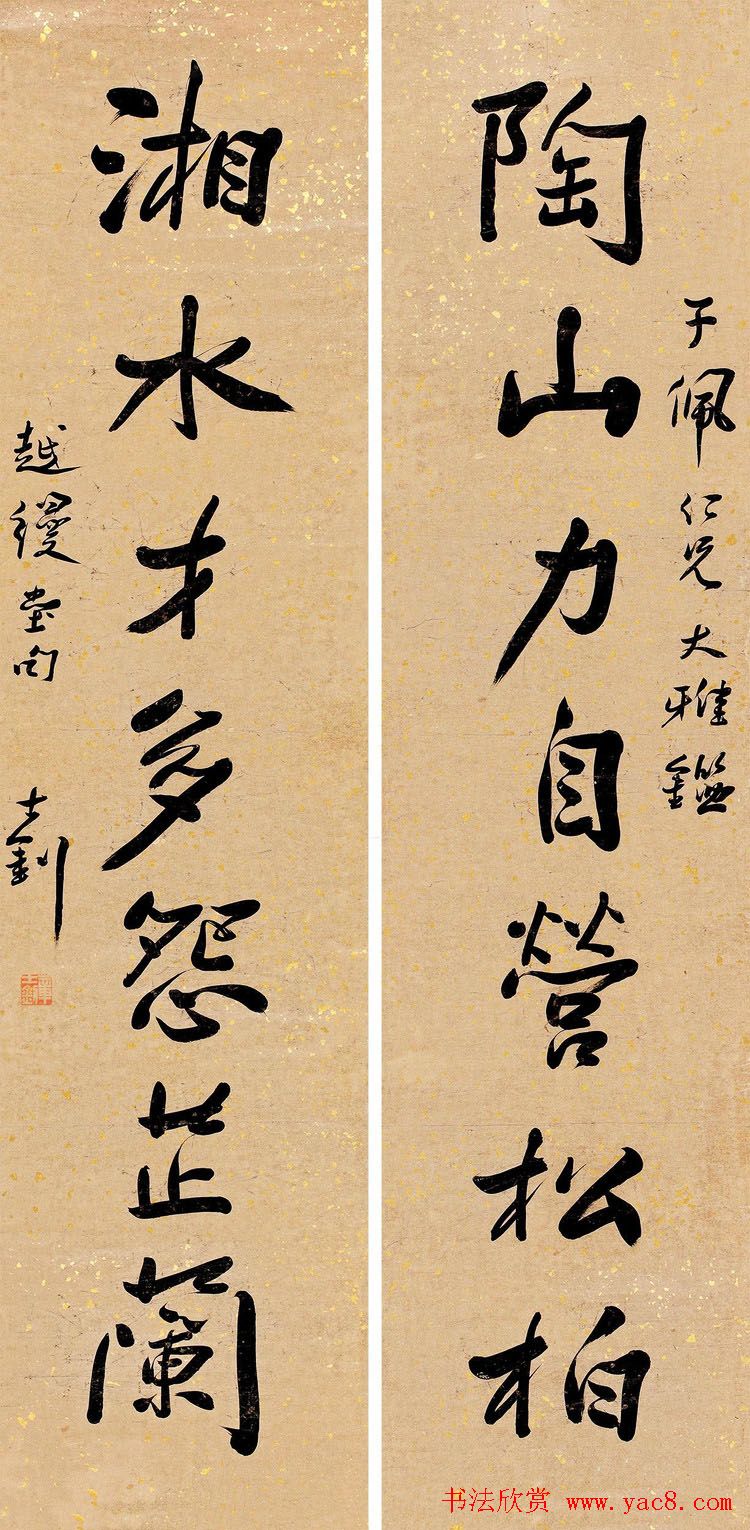 陶山力自營松柏
于佩仁兄大雅鑑
湘水才多怨芷蘭
越縵堂句
士釗
书法欣赏 www.yac8.com